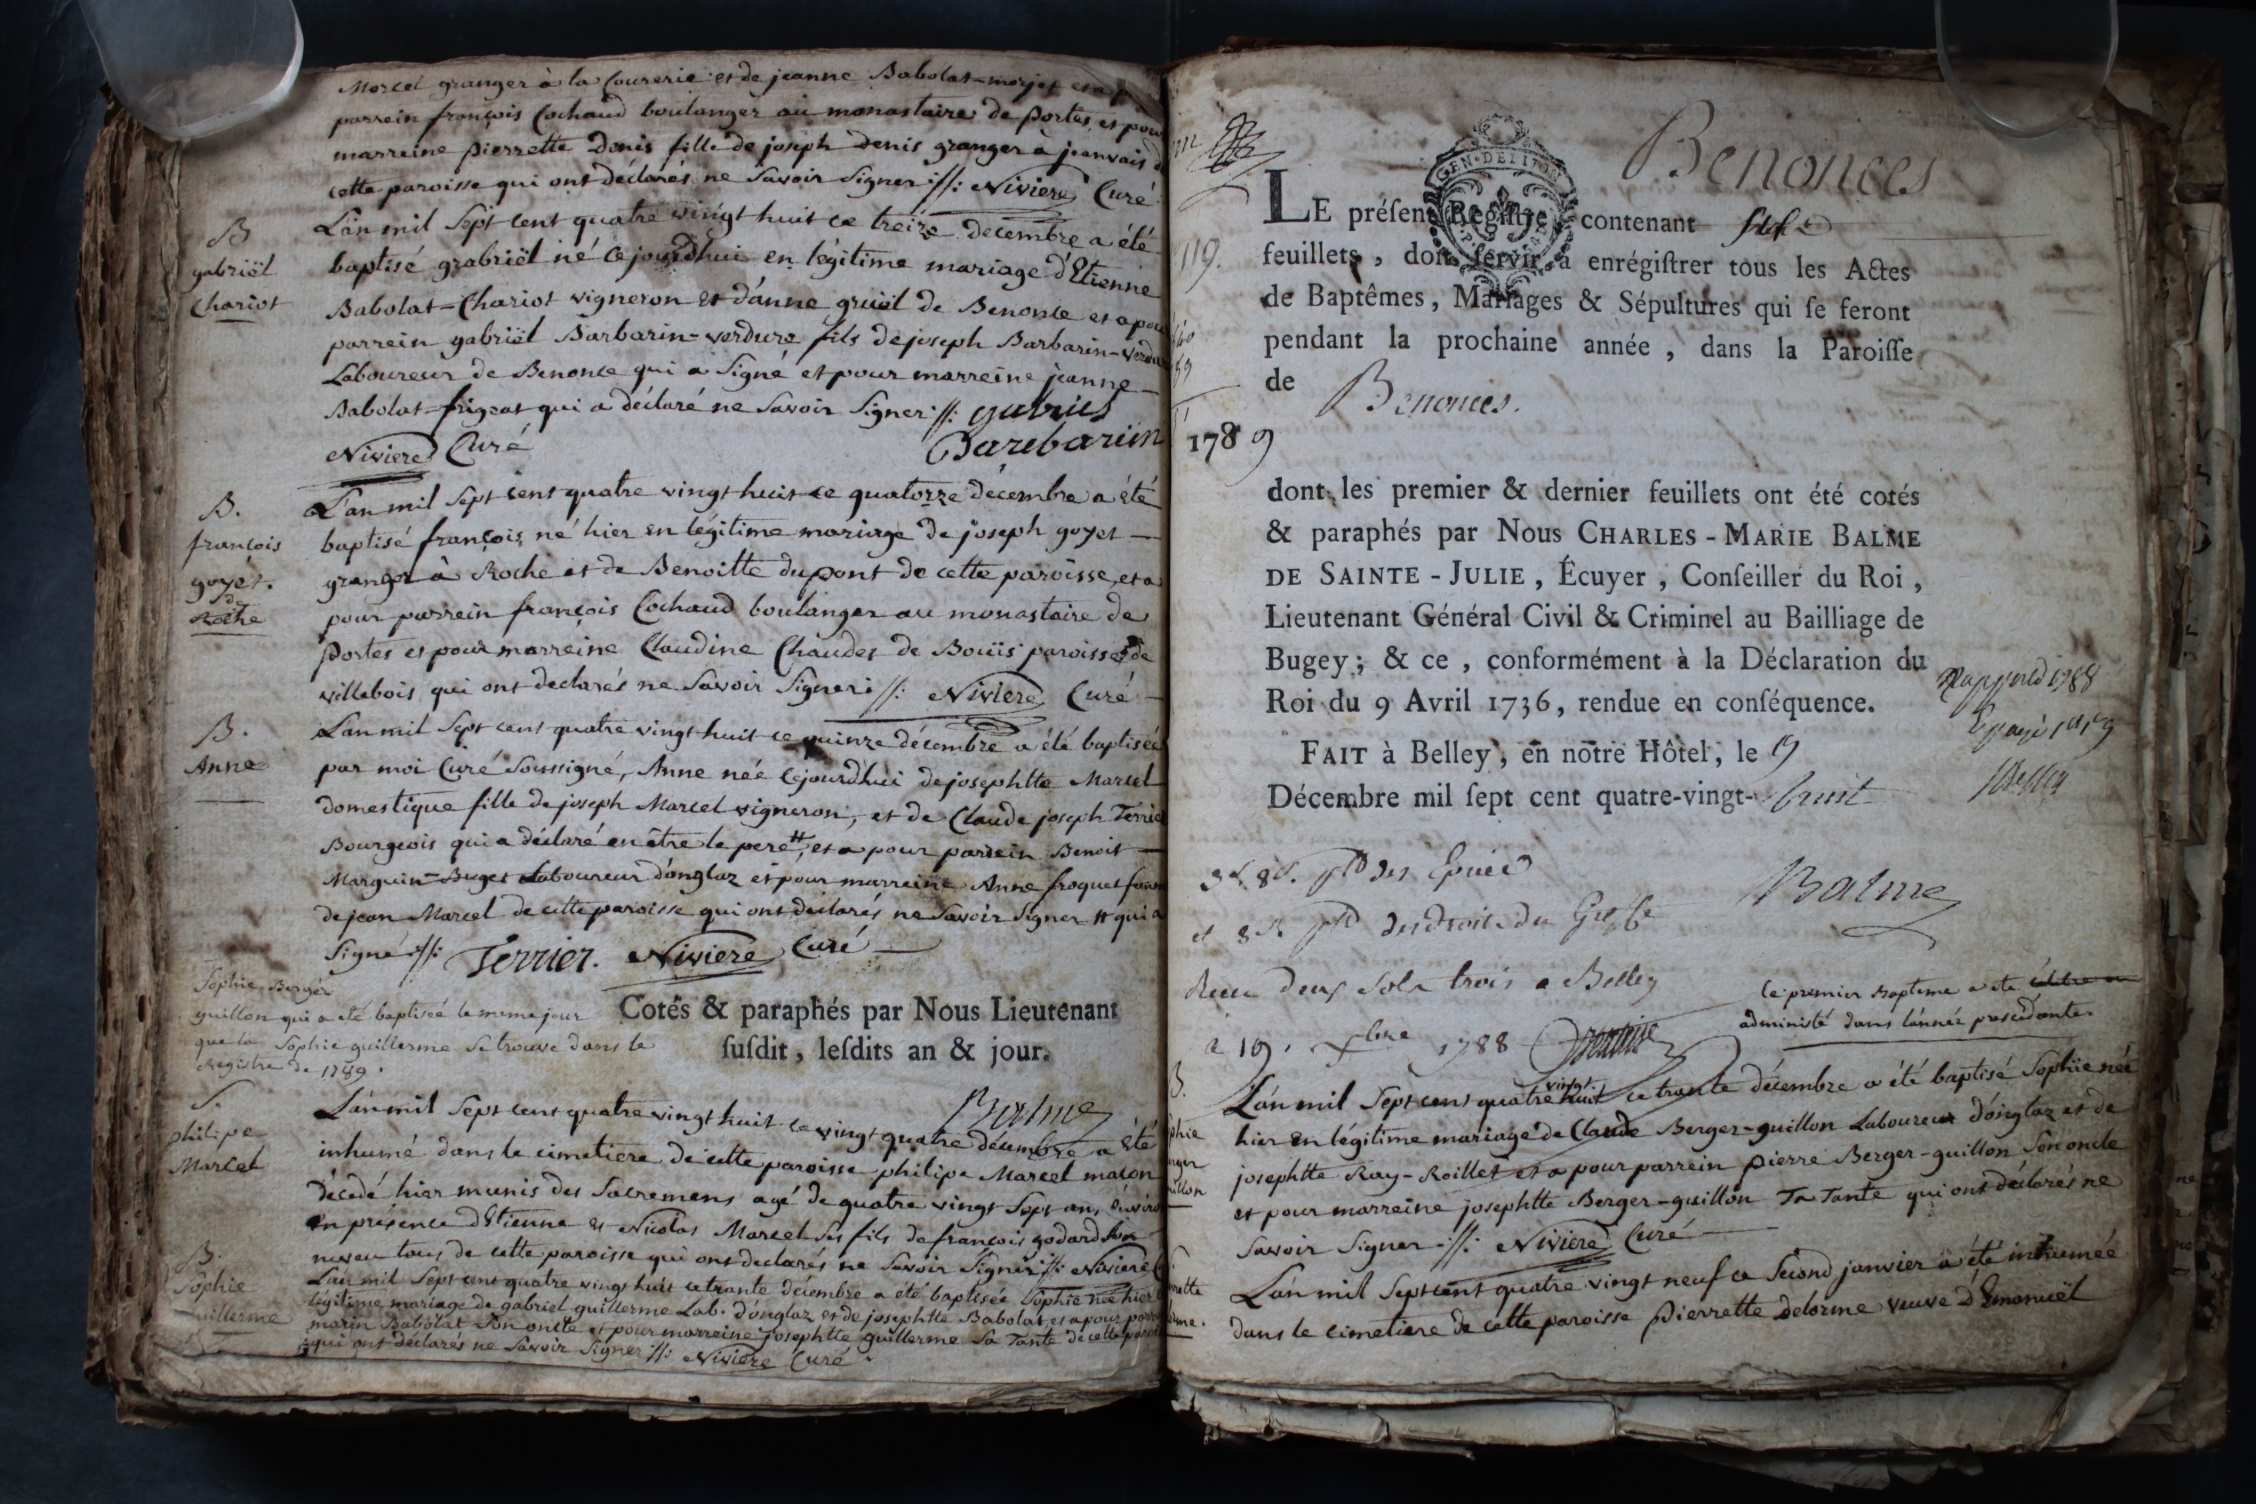 Marcel granger à la Courerie et de jeanne Babolat-morjot et a
parrein françois Cochaud boulanger au monastaire de Portes, et pour
marreine pierrette Denis fille de joseph Denis granger à jeanvais
cette paroisse qui ont déclarés ne Savoir Signer ://: Niviere Curé
B
gabriël
Chariot
L'an mil Sept cent quatre vingt huit ce treize decembre a été
baptisé grabriël né cejourd'hui en légitime mariage d'Etienne
Babolat-Chariot vigneron et d'anne gruiel de Benonce et a pour
parrein gabriël Barbarin-verdure fils de joseph Barbarin-verdure
Laboureur de Benonce qui a Signé et pour marreine jeanne
Babolat-frigeat qui a déclaré ne Savoir Signer ://: gabriel
Niviere Curé Barebariin
B.
françois
goyet.
de
Roche
L'an mil Sept cent quatre vingt huit ce quatorze décembre a été
baptisé françois né hier en légitime mariage de joseph goyet
granger à Roche et de Benoitte dupont de cette paroisse, et a
pour parrein françois Cochaud boulanger au monastaire de
Portes et pour marreine Claudine Chaudet de Boüis paroisse de
villebois qui ont declarés ne Savoir Signer ://: Niviere Curé
B.
Anne
L'an mil Sept cent quatre vingt huit ce quinze décembre a été baptisée
par moi Curé Soussigné, Anne née cejourd'hui de josephtte Marcel
domestique fille de joseph Marcel vigneron, et de Claude joseph Terrier
Bourgeois qui a déclaré en être le pere #, et a pour parrein Benoit
Marguin-Buget Laboureur d'onglaz et pour marreine Anne froquet femme
de jean Marcel de cette paroisse qui ont declarés ne Savoir Signer # qui a
Signé ://: Terrier. Niviere Curé
Sophie Berger
guillon qui a été baptisée le meme jour
que la Sophie guillerme Se trouve dans le
Registre de 1789.
Cotés & paraphés par Nous Lieutenant
ſuſdit, leſdits an & jour.
Balme
S.
philipe
Marcel
L'an mil Sept cent quatre vingt huit ce vingt quatre décembre a été
inhumé dans le cimetiere de cette paroisse philipe Marcel maçon
décedé hier munis des Sacremens agé de quatre vingt Sept ans environ
en présence d'Etienne et Nicolas Marcel Ses fils de françois godard Son
neveu tous de cette paroisse qui ont declarés ne Savoir Signer ://: Niviere
B.
Sophie
guillerme
L'an mil Sept cent quatre vingt huit ce trante décembre a été baptisée Sophie née hier
légitime mariage de gabriel guillerme Lab. d'onglaz et de josephtte Babolat et a pour parrein
marin Babolat Son oncle et pour marreine josephtte guillerme Sa Tante de cette paroisse
qui ont déclarés ne Savoir Signer ://: Niviere Curé.
Benonces
GEN·DE LION
LE préſent Regiſtre, contenant
feuillets, doit ſervir à enrégiſtrer tous les Actes
de Baptêmes, Mariages & Sépultures qui ſe feront
pendant la prochaine année, dans la Paroiſſe
de Benonces.
1789
119.
dont les premier & dernier feuillets ont été cotés
& paraphés par Nous CHARLES-MARIE BALME
DE SAINTE-JULIE, Écuyer, Conſeiller du Roi,
Lieutenant Général Civil & Criminel au Bailliage de
Bugey; & ce, conformément à la Déclaration du
Roi du 9 Avril 1736, rendue en conſéquence.
FAIT à Belley, en notre Hôtel, le 19
Décembre mil ſept cent quatre-vingt-huit
Balme
Receu deux Sols trois a Belley
a 19. Xbre 1788
Ce premier Bapteme a ete
administé dans l'année precedante
L'an mil Sept cent quatre vingt huit ce trante décembre a été baptisé Sophie née
hier en légitime mariage de Claude Berger-guillon Laboureur d'onglaz et de
josephtte Ray-Roillet et a pour parrein pierre Berger-guillon Son oncle
et pour marreine josephtte Berger-guillon Sa Tante qui ont déclarés ne
Savoir Signer ://: Niviere Curé
L'an mil Sept cent quatre vingt neuf ce Second janvier a été inhumée
dans le cimetiere de cette paroisse Pierrette delorme veuve d'Emanuël